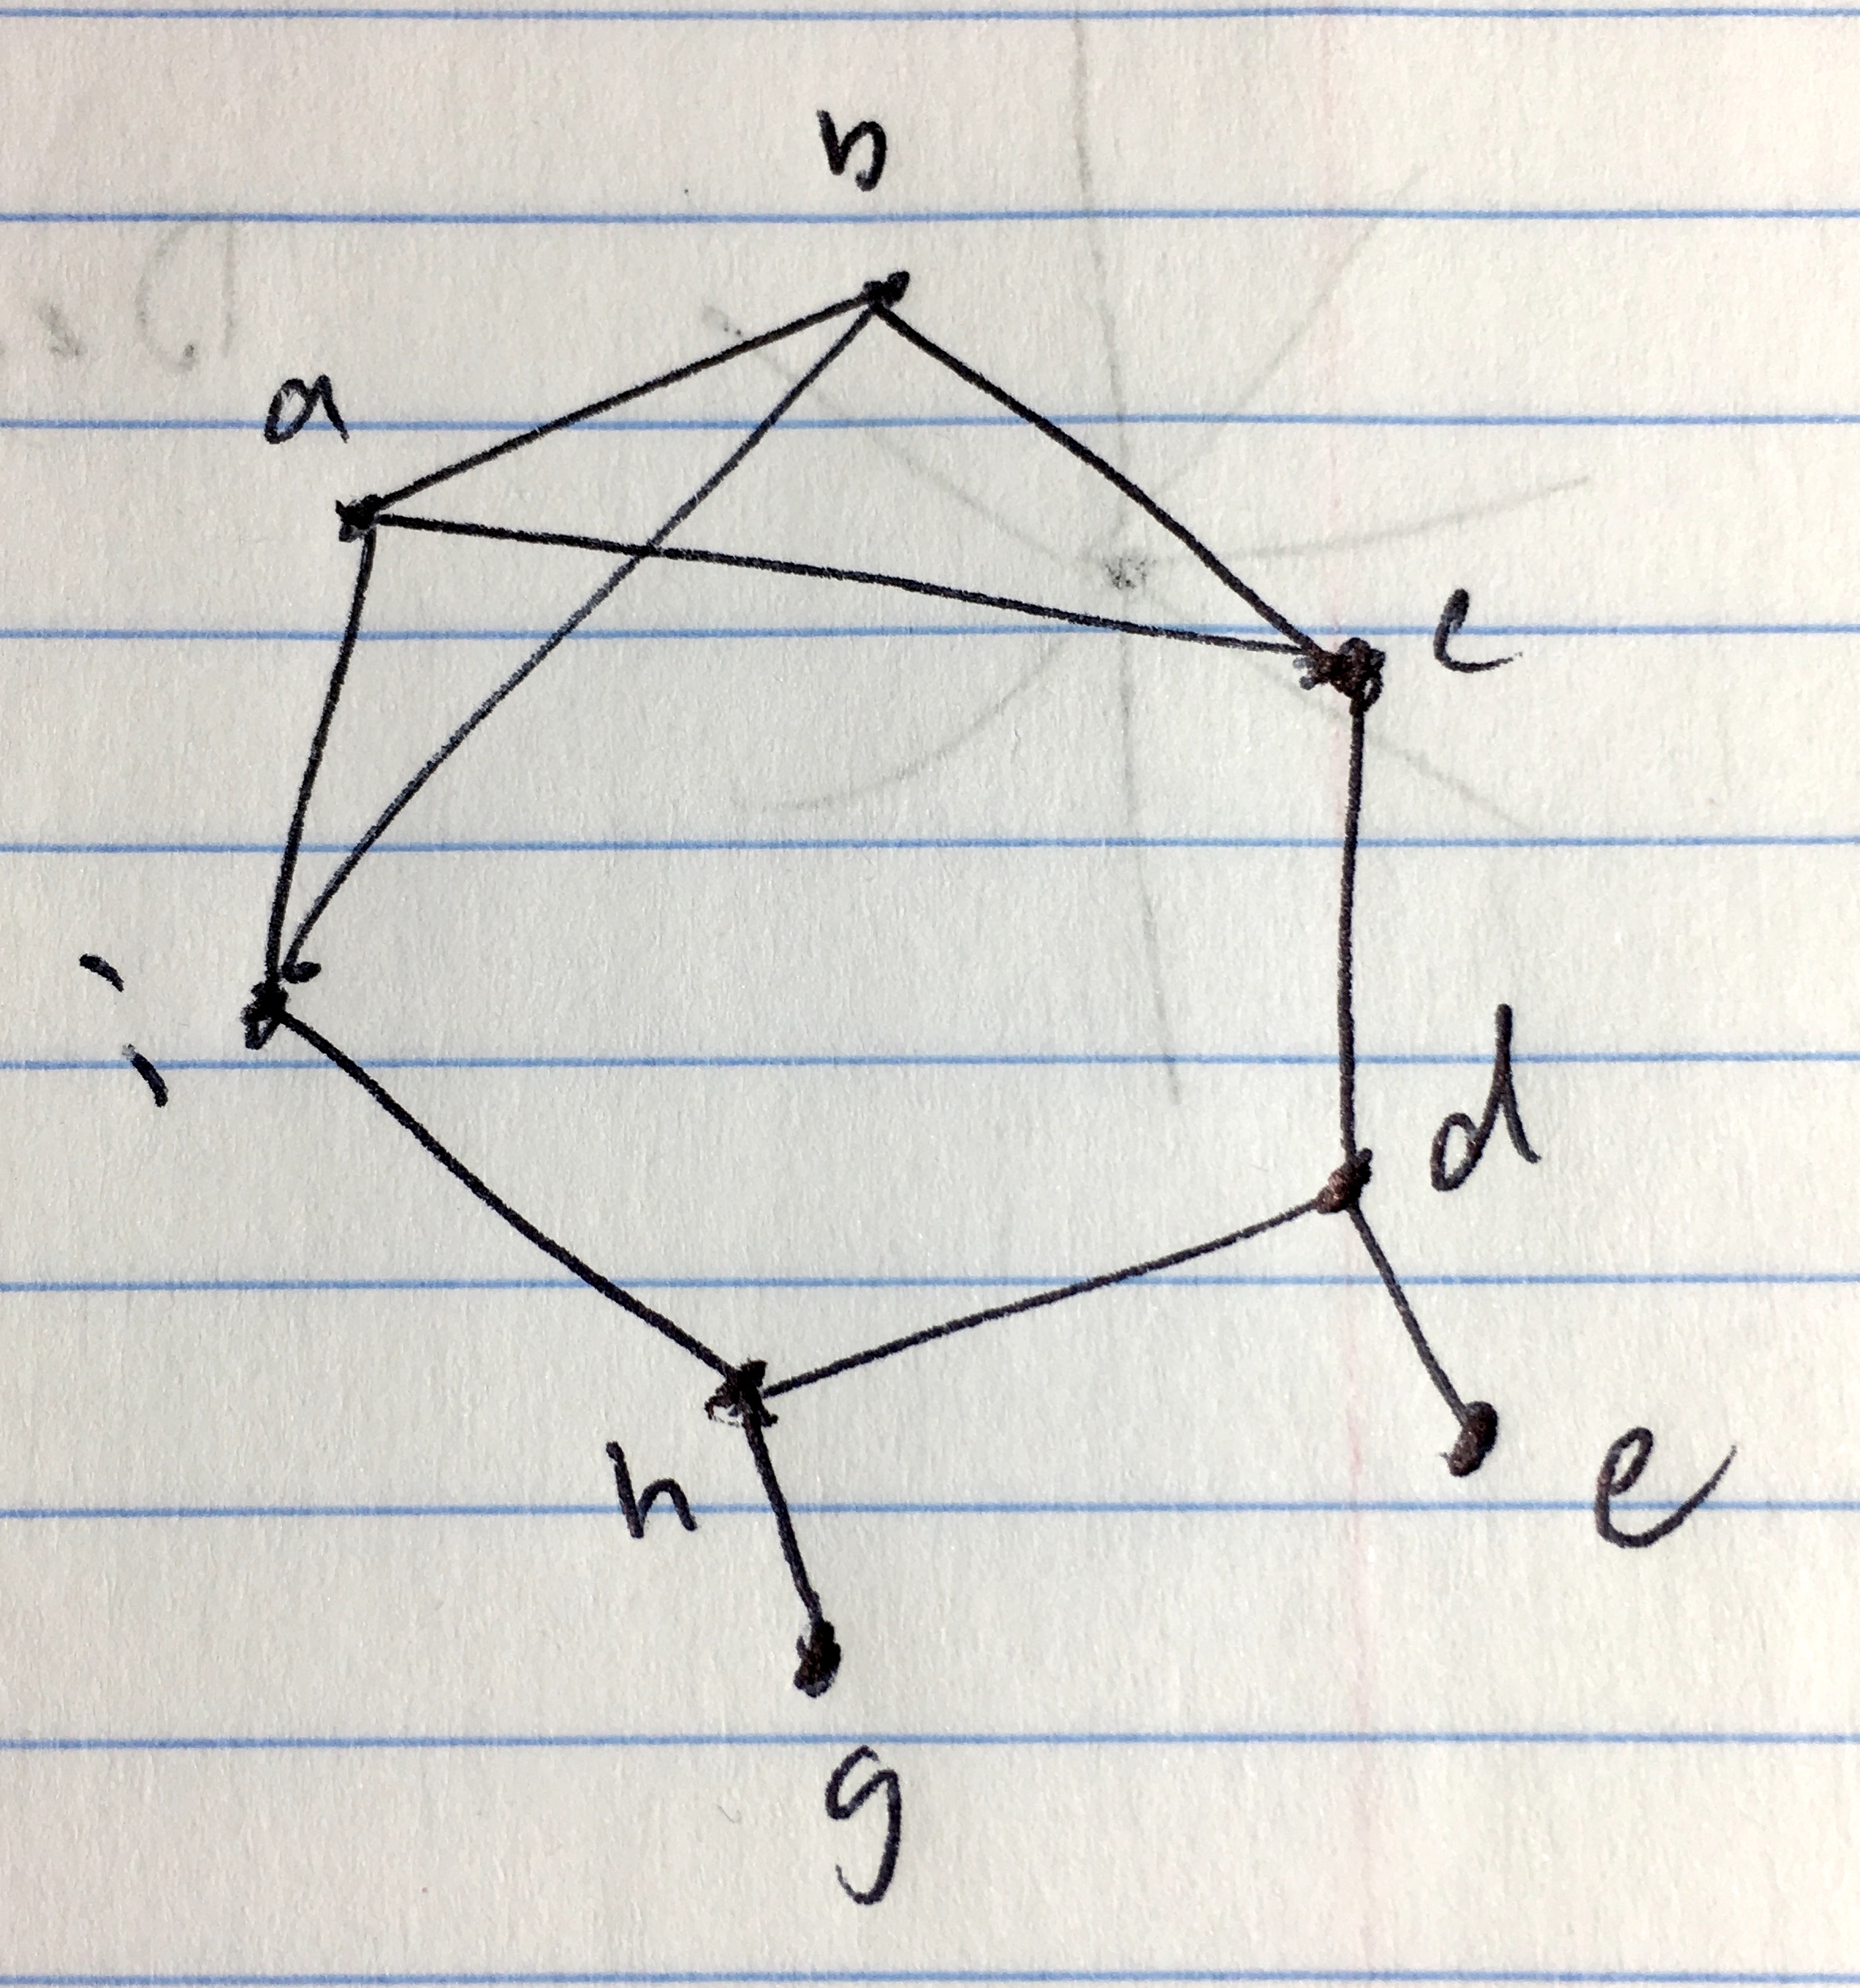 b
a
c
i
d
h
e
g